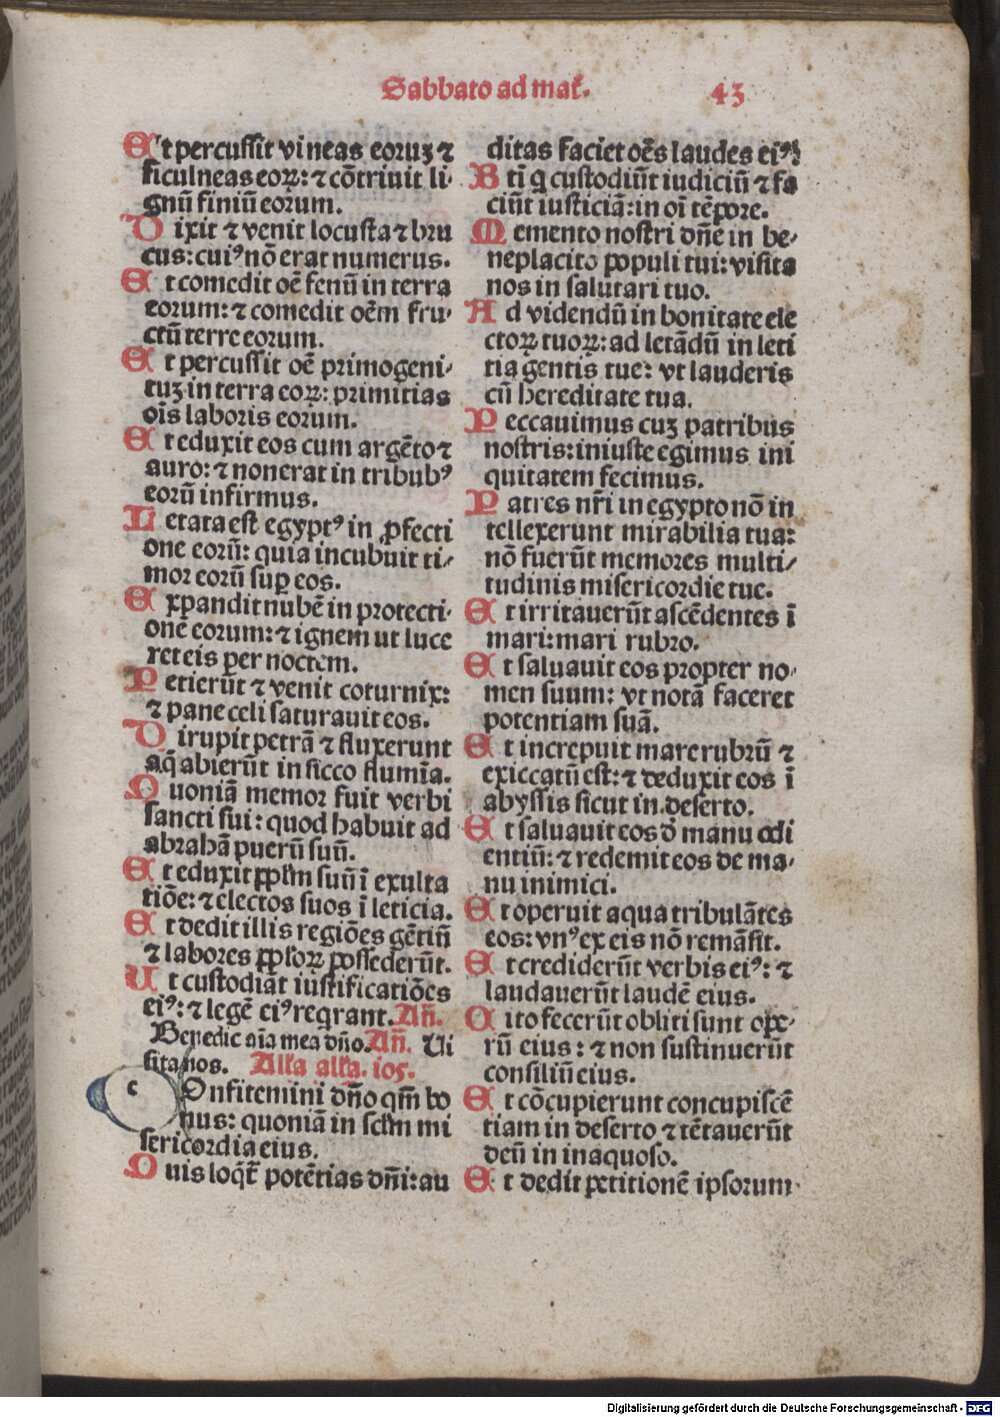 Sabbato ad mat̄. 43
Et percussit vineas eoruꝫ ⁊
ficulneas eoꝝ: ⁊ cōtriuit li-
gnū finiū eorum.
Dixit ⁊ venit locusta ⁊ bru
cus: cuiꝰ nō erat numerus.
Et comedit oē fenū in terra
eorum: ⁊ comedit oēm fru-
ctū terre eorum.
Et percussit oē primogeni-
tuꝫ in terra eoꝝ: primitias
oīs laboris eorum.
Et eduxit eos cum argēto ⁊
auro: ⁊ non erat in tribubꝰ
eorū infirmus.
Letata est egyptꝰ in ꝓfecti
one eorū: quia incubuit ti-
mor eorū suꝑ eos.
Expandit nubē in protecti-
onē eorum: ⁊ ignem ut luce
ret eis per noctem.
Petierūt ⁊ venit coturnix:
⁊ pane celi saturauit eos.
Dirupit petrā ⁊ fluxerunt
aq̄ abierūt in sicco flumīa.
Quoniā memor fuit verbi
sancti sui: quod habuit ad
abrahā puerū suū.
Et eduxit ppl̄m suū ī exulta
tiōe: ⁊ electos suos ī leticia.
Et dedit illis regiōes gētiū
⁊ labores ppl̓oꝝ possederūt.
Ut custodiat iustificatiōes
eiꝰ: ⁊ legē eiꝰ reqrant. Añ.
Benedic aīa mea dño. Añ. Vi
sita nos. All̓a all̓a. ios.
c Onfitemini dño qm̄ bo
nus: quoniā in sclm̄ mi
sericordia eius.
Quis loq̄t̄ potētias dñi: au
ditas faciet oēs laudes eiꝰ?
Bti q custodiūt iudiciū ⁊ fa
ciūt iusticiā: in oī tēpore.
Memento nostri dñe in be-
neplacito populi tui: visita
nos in salutari tuo.
Ad videndū in bonitate ele
ctoꝝ tuoꝝ: ad letādū in leti
tia gentis tue: vt lauderis
cū hereditate tua.
Peccauimus cuꝫ patribus
nostris: iniuste egimus ini
quitatem fecimus.
Patres nr̄i in egypto nō in
tellexerunt mirabilia tua:
nō fuerūt memores multi-
tudinis misericordie tue.
Et irritauerūt ascēdentes ī
mari: mari rubro.
Et saluauit eos propter no-
men suum: vt notā faceret
potentiam suā.
Et increpuit mare rubrū ⁊
exiccatū est: ⁊ deduxit eos ī
abyssis sicut in deserto.
Et saluauit eos d̄ manu odi
entiū: ⁊ redemit eos de ma-
nu inimici.
Et operuit aqua tribulātes
eos: vnꝰ ex eis nō remāsit.
Et crediderūt verbis eiꝰ: ⁊
laudauerūt laudē eius.
Cito fecerūt obliti sunt ope-
rū eius: ⁊ non sustinuerūt
consiliū eius.
Et cōcupierunt concupiscē
tiam in deserto ⁊ tētauerūt
deū in inaquoso.
Et dedit petitionē ipsorum
Digitalisierung gefördert durch die Deutsche Forschungsgemeinschaft - DFG